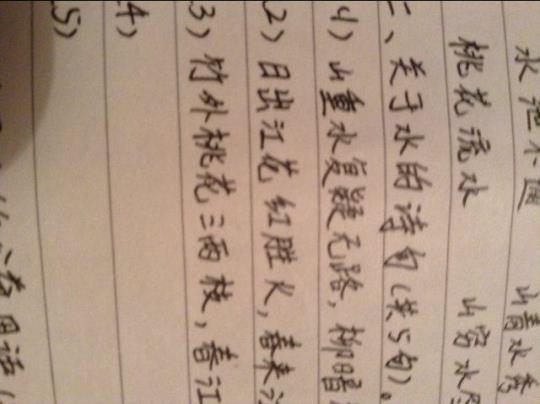 水泄不通 山青水秀
桃花流水 山穷水尽
二、关于水的诗句(共5句)。
1) 山重水复疑无路,柳暗
2) 日出江花红胜火,春来江
3) 竹外桃花三两枝,春江
4)
5)